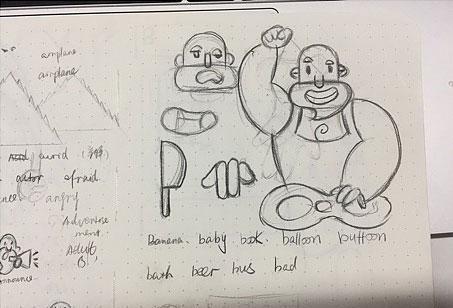 airplane
airplane
avoid
actor afraid
angry
Advertise
ment
Adult
announce
Banana. baby book. balloon buttoon
bath beer bus bad